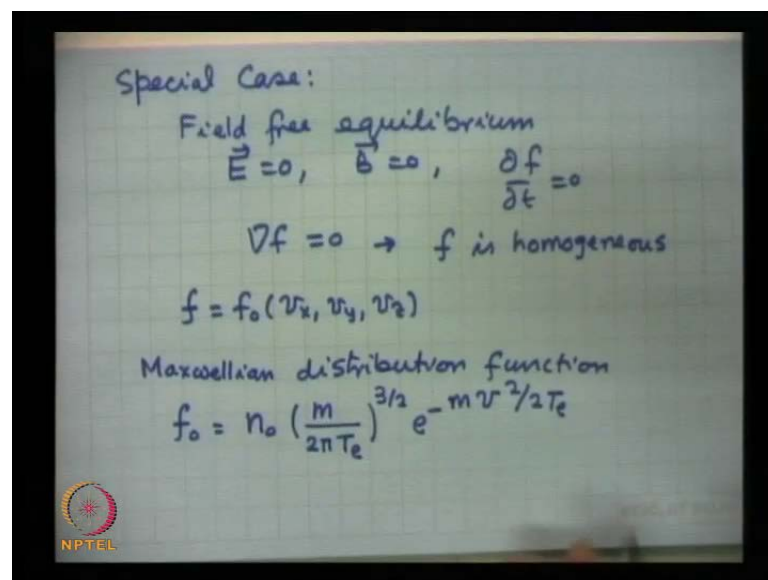 Special Case:
Field free equilibrium
E⃗ = 0, B⃗ = 0, ∂f/∂t = 0
∇f = 0 → f is homogeneous
f = f₀(vₓ, v_y, v_z)
Maxwellian distribution function
f₀ = n₀ (m/2πTₑ)^{3/2} e^{-mv²/2Tₑ}
NPTEL